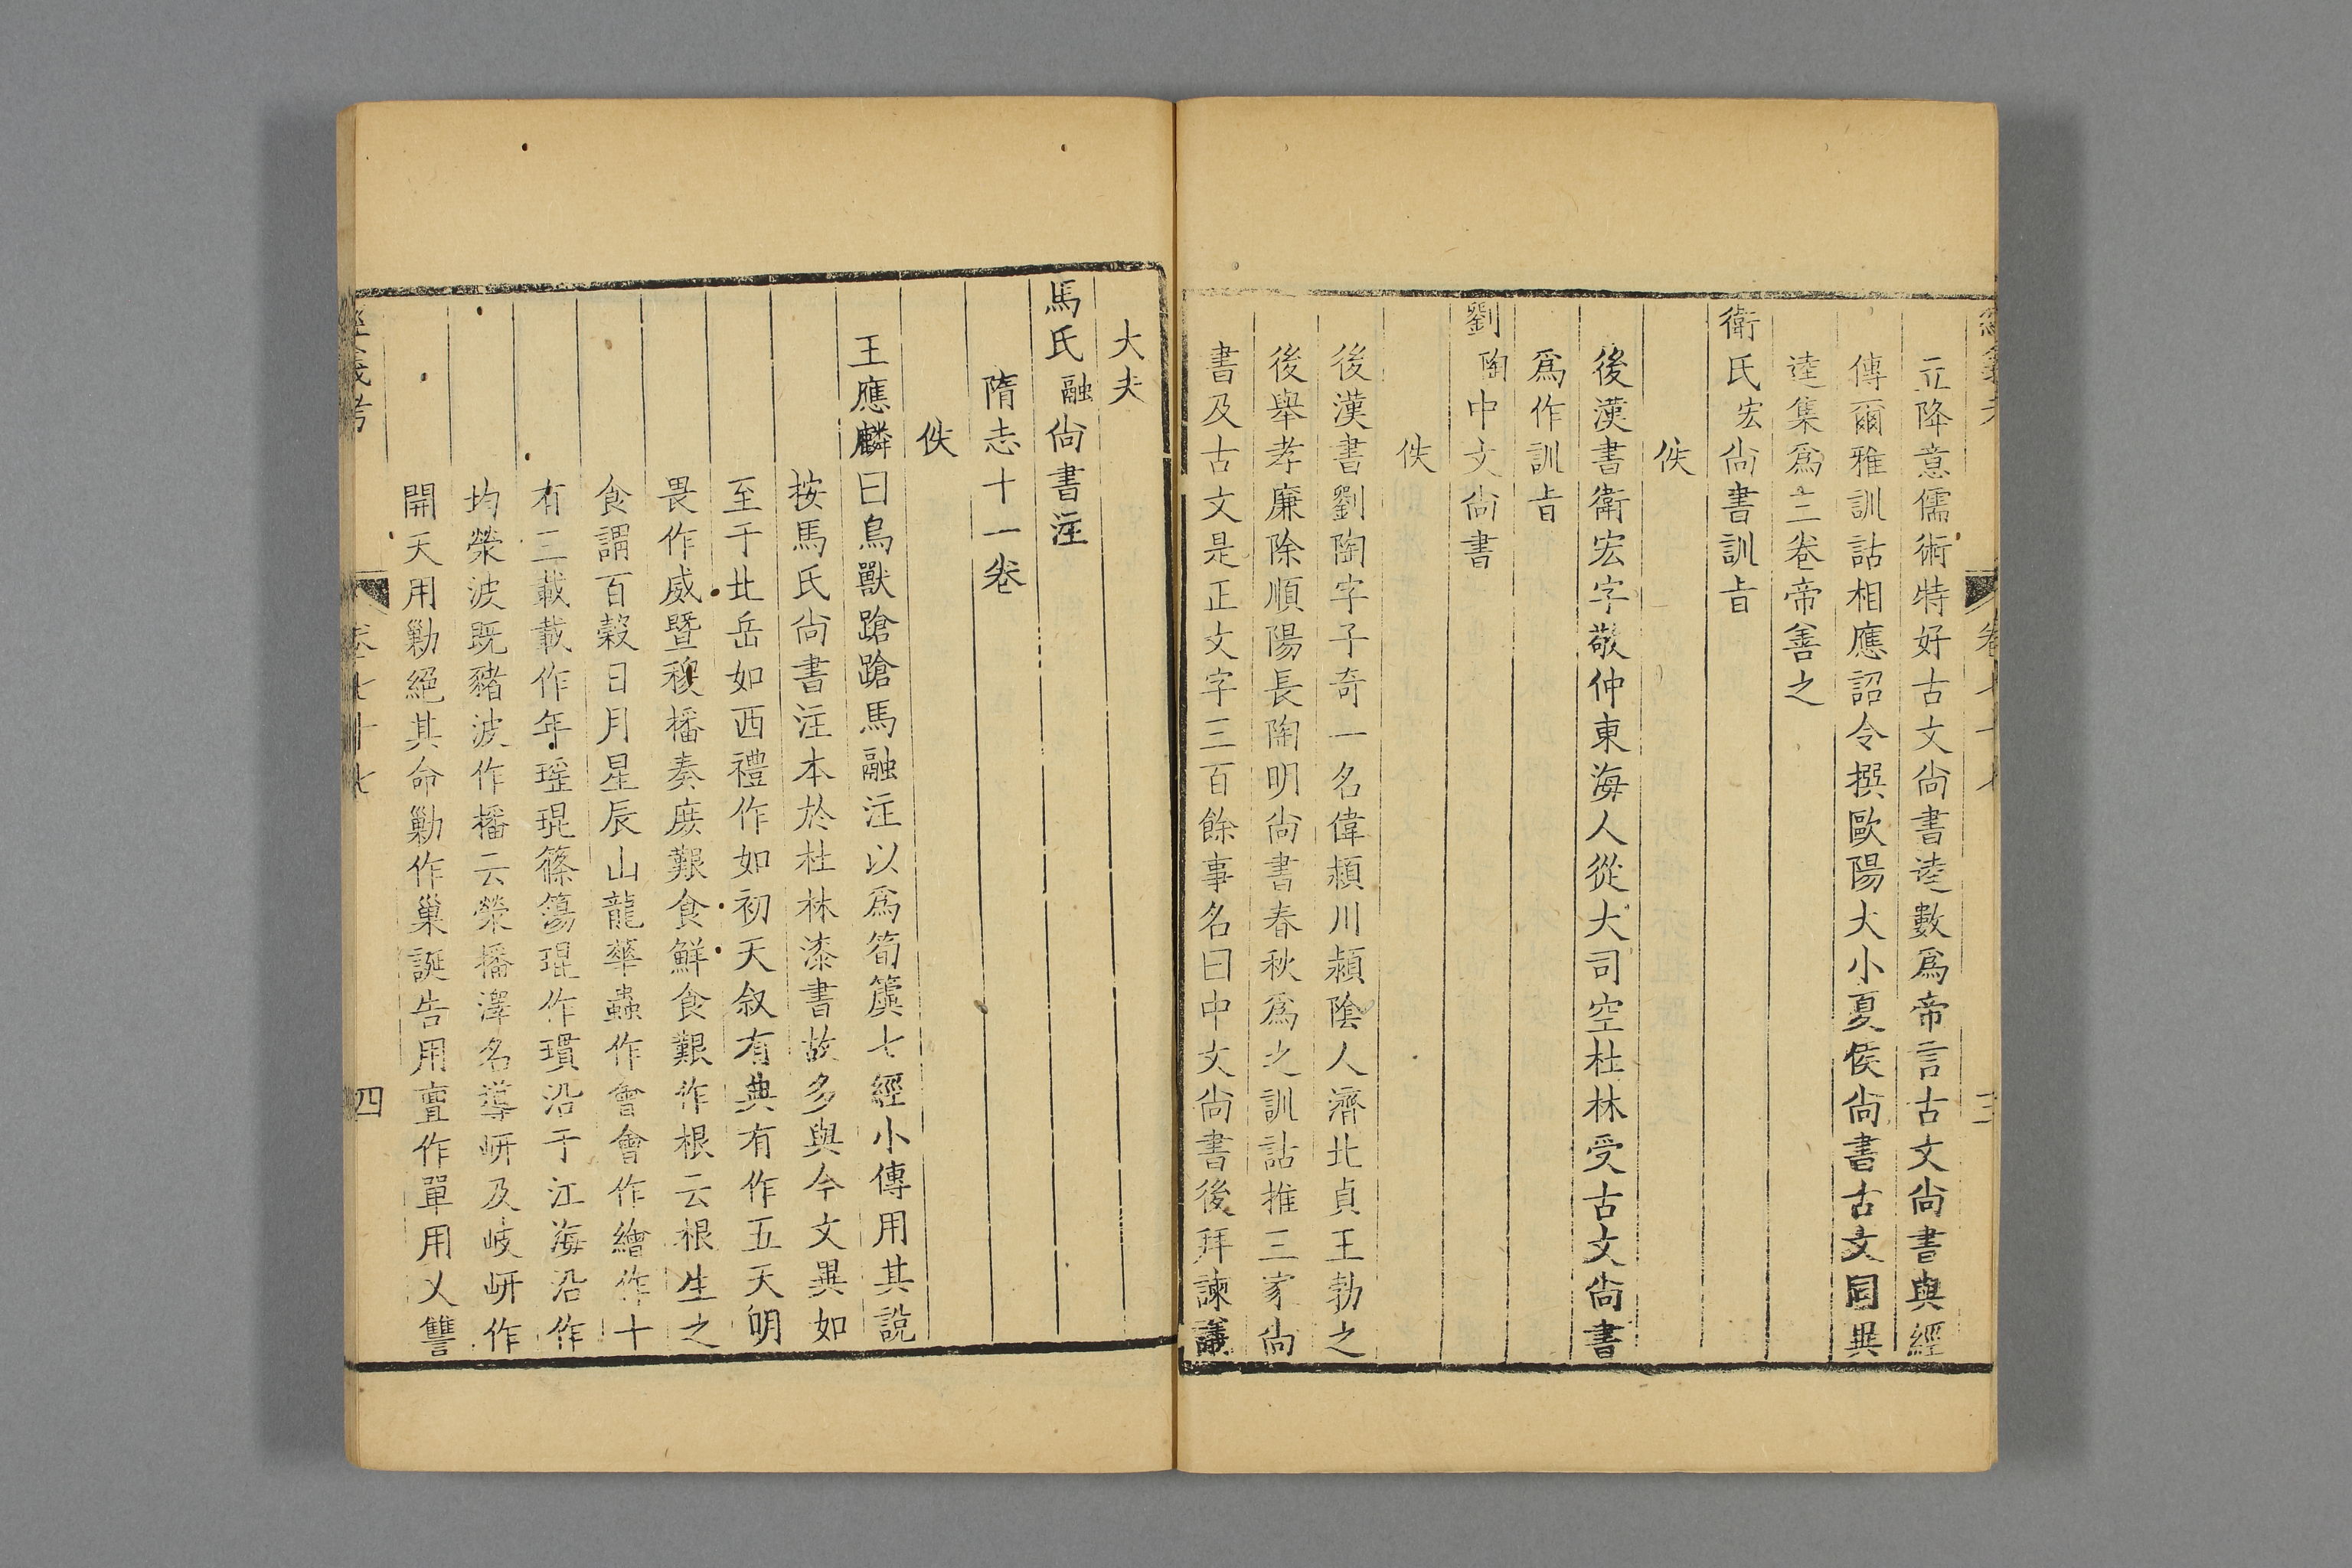 立降意儒術特好古文尚書逵數爲帝言古文尚書與經
傳爾雅訓詁相應詔令撰歐陽大小夏侯尚書古文同異
逵集爲三卷帝善之
衛氏宏尚書訓旨
佚
後漢書衛宏字敬仲東海人從大司空杜林受古文尚書
爲作訓旨
劉陶中文尚書
佚
後漢書劉陶字子奇一名偉潁川潁陰人濟北貞王勃之
後舉孝廉除順陽長陶明尚書春秋爲之訓詁推三家尚
書及古文是正文字三百餘事名曰中文尚書後拜諫議
大夫
馬氏融尚書注
隋志十一卷
佚
王應麟曰鳥獸蹌蹌馬融注以爲筍簴七經小傳用其說
按馬氏尚書注本於杜林漆書故多與今文異如
至于北岳如西禮作如初天叙有典有作五天明
畏作威暨稷播奏庶艱食鮮食艱作根云根生之
食謂百穀日月星辰山龍華蟲作會會作繪作十
有三載載作年瑤琨篠簜琨作瑻沿于江海沿作
均滎波既豬波作播云滎播澤名導岍及岐岍作
開天用勦絕其命勦作巢誕告用亶作單用乂讐
經義考
卷七十七
四